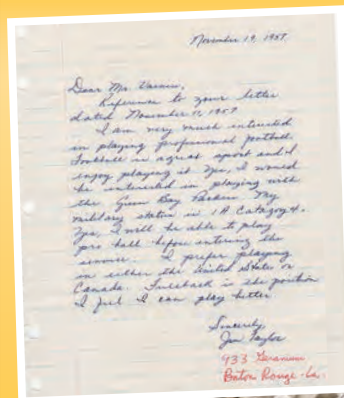 November 19, 1957
Dear Mr. Vainisi,
Reference to your letter
dated November 11, 1957
I am very much interested
in playing professional football.
Football is a great sport and I
enjoy playing it. Yes, I would
be interested in playing with
the Green Bay Packers. My
military status is 1A Category 4.
Yes, I will be able to play
pro ball before entering the
service. I prefer playing
in either the United States or
Canada. Fullback is the position
I feel I can play better
Sincerely,
Jim Taylor
933 Geranium
Baton Rouge - La.